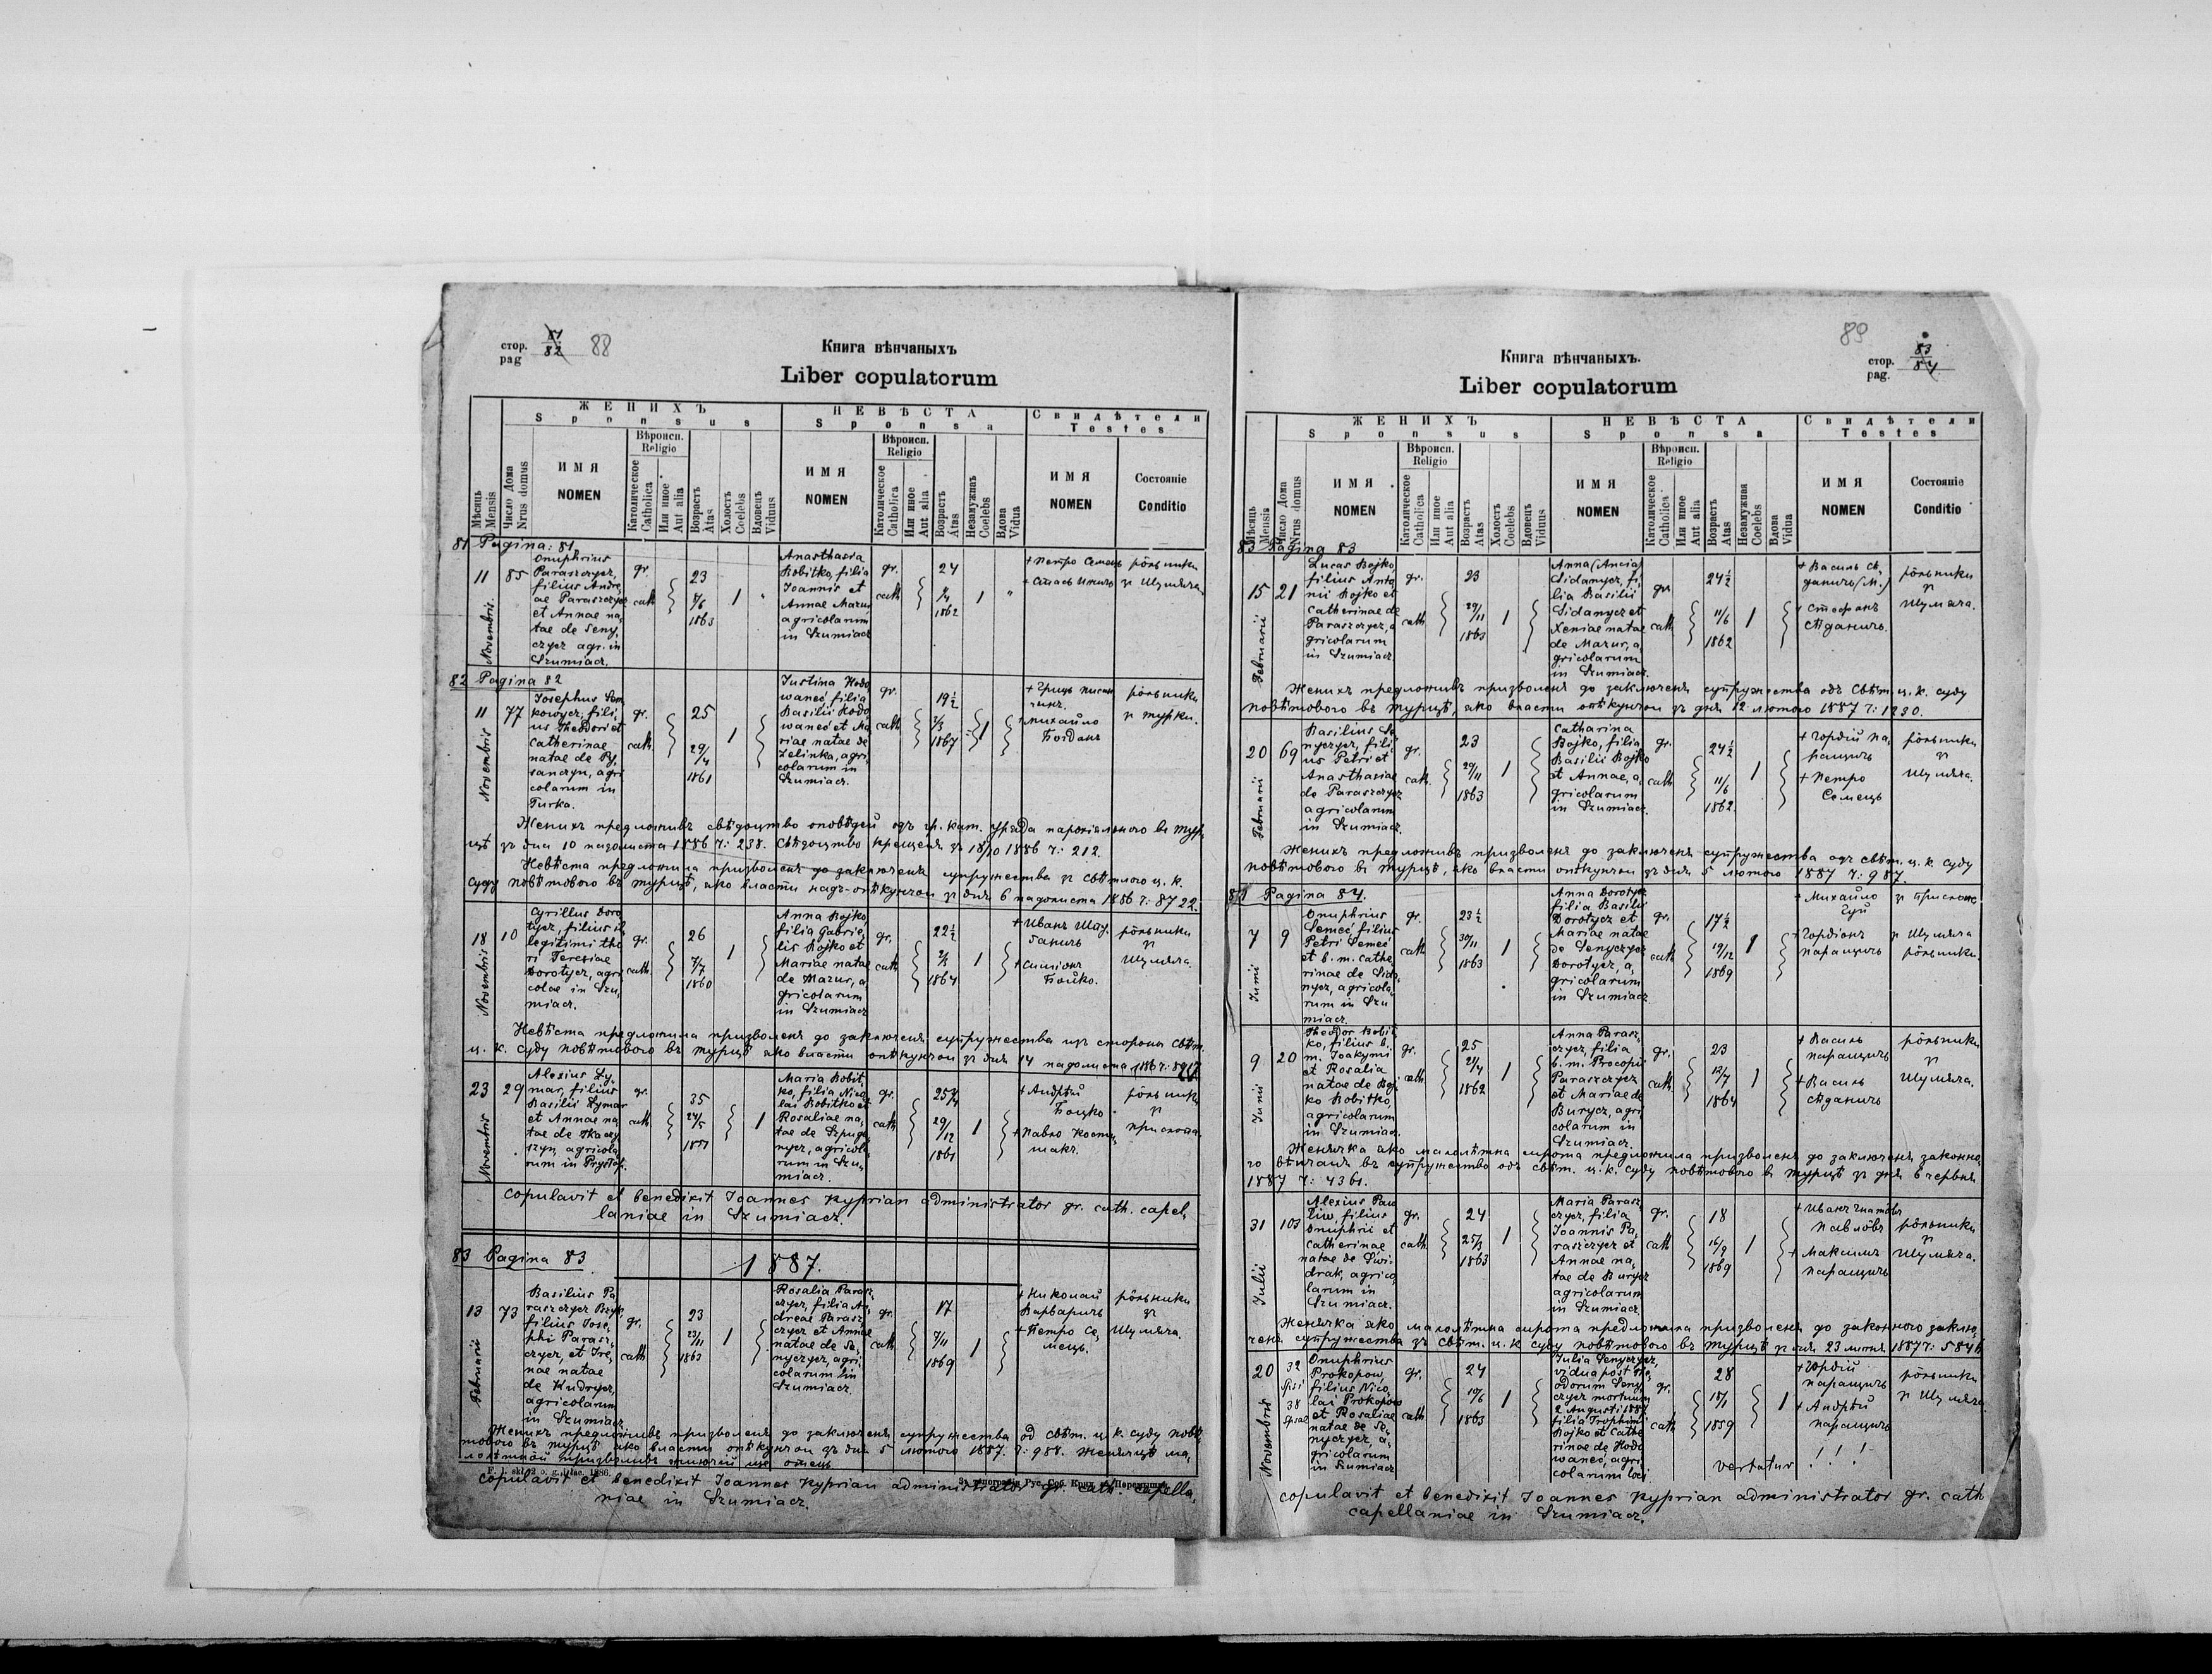 стор.
pag
82
88
Книга вѣнчаныхъ
Liber copulatorum
ЖЕНИХЪ
Sponsus
НЕВѢСТА
Sponsa
Свидѣтели
Testes
Мѣсяць
Mensis
Число Дома
Nrus domus
ИМЯ
NOMEN
Вѣроисп.
Religio
Католическое
Catholica
Или иное
Aut alia
Возрастъ
Atas
Холостъ
Coelebs
Вдовецъ
Viduus
ИМЯ
NOMEN
Вѣроисп.
Religio
Католическое
Catholica
Или иное
Aut alia
Возрастъ
Atas
Coelebs
Вдова
Vidua
ИМЯ
NOMEN
Состояніе
Conditio
81 Pagina: 81.
11
Novembris.
85
Onuphrius
Paraszczycz,
filius Andre,
ae Paraszczycz
et Annae na,
tae de Seny,
czycz agr. in
Szumiacz.
gr.
cath
23
1863
1
Anasthasia
Bobitko, filia
Joannis et
Annae Mazur,
agricolarum
in Szumiacz
gr.
cath
24
1862
1
+ Петро Семець
рôльники
зъ Шумяча
82 Pagina 82
11
Novembris
77
Josephus
us Theodori et
Catherinae
natae de Py,
sanczyn, agri
colarum in
Turka.
gr.
cath.
25
29/4
1861
1
Justina Hodo
waneć filia
Basilii Hodo
waneć et Ma
riae natae de
Zelinka, agri,
colarum in
Szumiacz.
gr.
cath
19 1/2
1867
1
+ Михайло
Богданъ
рôльники
зъ Турки.
Женихъ предложивъ свѣдоцтво оповѣдей одъ гр. кат. уряда парохіяльного въ Тур,
цѣ зъ дня 10 падолиста 1886 ч: 238. Свѣдоцтво крещеня зъ 18/10 1886 ч: 212.
Невѣста предложила призволеня до заключеня супружества зъ свѣтлого ц. к.
суду повѣтового въ Турцѣ, яко власти надъ-опѣкунчои зъ дня 6 падолиста 1886 ч: 8722.
18
Novembris
10
Cyrillus Doro
tycz, filius il
legitimi tho
ri Teresiae
Dorotycz, agri
colae in Szu,
miacz.
gr.
cath.
26
7/7
1860
1
Anna Bojko,
filia Gabrie,
lis Bojko et
Mariae natae
de Mazur, a
gricolarum
in Szumiacz
gr.
cath
22 1/2
1864
1
+ Симіонъ
Бойко.
рôльники
зъ
Шумяча.
Невѣста предложила призволеня до заключеня супружества изъ стороны свѣт.
ц. к. суду повѣтового въ Турцѣ яко власти опѣкунчои зъ дня 14 падолиста 1886 ч:
23
Novembris
29
Alexius Ly,
mar, filius
Basilii Lymar
et Annae na
tae de Tkaczy
szyn, agricola,
rum in
gr.
cath
35
24/5
1851
1
Maria Bobit,
ko, filia Nico
lai Bobitko et
Rosaliae na,
tae de
nycz, agricola
rum in Szu,
miacz.
gr.
cath
25 3/4
29/12
1861
1
+ Андрѣй
Бойко
+ Павло
рôльники
зъ
Copulavit et benedixit Joannes Kyprian administrator gr. cath. capel,
laniae in Szumiacz.
83 Pagina 83
1887.
13
Februarii
73
Basilius Pa
raszczycz
filius Jose,
phi Parasz,
czycz, et Ire,
nae natae
de Kudrycz,
agricolarum
in Szumiacz
gr.
cath
23
23/11
1863
1
Rosalia Parasz,
czycz, filia An,
dreae Parasz,
czycz et Annae
natae de Se,
nyczycz, agri,
colarum in
Szumiacz.
gr.
cath
17
7/11
1869
1
+ Николай
Варваричъ
+ Петро Се,
мець.
рôльники
зъ
Шумяча.
Женихъ предложивъ призволеня до заключеня супружества од свѣт. ц. к. суду повѣ,
тового въ Турцѣ яко власти опѣкунчои зъ дня 5 лютого 1887. ч: 988.
Copulavit et benedixit Joannes Kyprian administrator gr. cath. capella,
niae in Szumiacz.
89
стор.
pag.
83
84
Книга вѣнчаныхъ.
Liber copulatorum
ЖЕНИХЪ
Sponsus
НЕВѢСТА
Sponsa
Свидѣтели
Testes
Мѣсяць
Mensis
Число Дома
Nrus domus
ИМЯ
NOMEN
Вѣроисп.
Religio
Католическое
Catholica
Или иное
Aut alia
Возрастъ
Atas
Холостъ
Coelebs
Вдовецъ
Viduus
ИМЯ
NOMEN
Вѣроисп.
Religio
Католическое
Catholica
Или иное
Aut alia
Возрастъ
Atas
Незамужная
Coelebs
Вдова
Vidua
ИМЯ
NOMEN
Состояніе
Conditio
83 Pagina 83
15
Februarii
21
Lucas Bojko,
filius Anto
nii Bojko et
Catherinae de
Paraszczycz, a
gricolarum
in Szumiacz
gr.
cath
23
29/11
1863
1
Anna (Ancia)
Sidanycz, fi,
lia Basilii
Sidanycz et
Xeniae natae
de Mazur, a,
gricolarum
in Szumiacz
gr
cath
24 1/2
11/6
1862
1
+ Василь Сѣ
даничъ (М.)
+ Стефанъ
Сѣданичъ.
рôльники
зъ
Шумяча.
Женихъ предложивъ призволеня до заключеня супружества одъ свѣт. ц. к. суду
повѣтового въ Турцѣ, яко власти опѣкунчои зъ дня 12 лютого 1887 ч: 1230.
20
Februarii
69
Basilius Se
nyczycz, fili
us Petri et
Anasthasiae
de Paraszczycz
agricolarum
in Szumiacz.
gr.
cath.
23
29/11
1863
1
Catharina
Bojko, filia
Basilii Bojko
et Annae, a,
gricolarum
in Szumiacz.
gr.
cath
24 1/2
11/6
1862.
1
+ Гордій Па,
ращичъ
+ Петро
Семець
рôльники
зъ
Шумяча.
Женихъ предложивъ призволеня до заключеня супружества одъ свѣт. ц. к. суду
повѣтового въ Турцѣ, яко власти опѣкунчои зъ дня 5 лютого 1887 ч: 987.
84 Pagina 84.
7
Junii
9
Onuphrius
Semeć filius
Petri Semeć
et b. m. Cathe
rinae de Sida,
nycz, agricola,
rum in Szu
miacz.
gr.
cath
23 1/2
30/11
1863
1
Anna Dorotycz
filia Basilii
Dorotycz et
Mariae natae
de Senyczycz
Dorotycz, a,
gricolarum
in Szumiacz
gr.
cath
17 1/2
19/12
1869
1
+ Михайло
+ Гордіянъ
Паращичъ
зъ Шумяча
рôльники.
9
Junii
20
Theodor Bobit
ko, filius b.
m. Joakymi
et Rosalia
natae de Boj,
ko Bobitko,
agricolarum
in Szumiacz.
gr.
cath
25
21/4
1862
1
Anna Parasz,
czycz, filia
b. m. Procopii
Paraszczycz
et Mariae de
Burycz, agri
colarum in
Szumiacz.
gr.
cath
23
12/7
1864
1
+ Василь
Паращичъ
+ Василь
Сѣданичъ
рôльники
зъ
Шумяча.
Женячка яко малолѣтна сирота предложила призволеня до заключеня законно,
го вѣнчаня въ супружество одъ свѣт. ц. к. суду повѣтового въ Турцѣ зъ дня 6 червня
1887 ч: 4361.
31
Julii
103
Alexius Paw
liw, filius
Onuphrii et
Catherinae
natae de Swi,
drak, agrico,
larum in
Szumiacz.
gr.
cath
24
25/3
1863
1
Maria Parasz,
czycz, filia
Joannis Pa,
raszczycz et
Annae na,
tae de Burycz
agricolarum
in Szumiacz.
gr.
cath
18
16/9
1869
1
+ Иванъ
Павлôвъ
+ Максимъ
Паращичъ
рôльники
зъ
Шумяча.
Женячка яко малолѣтна сирота предложила призволеня до законного заклю,
ченя супружества зъ свѣт. ц. к. суду повѣтового въ Турцѣ зъ дня 23 липня 1887 ч:
20
Novembris
32
38
Onuphrius
Prokopow,
filius Nico,
lai Prokopow
et Rosaliae
natae de Se,
nyczycz, a,
gricolarum
in Szumiacz
gr.
cath
24
10/6
1863
1
Julia Senyczycz,
vidua post The,
odorum Seny,
czycz mortuum
2 Augusti 1887
filia Trophimi
Bojko et Cathe
rinae de Hodo
waneć, agri,
colarum loci
gr.
cath
28
18/1
1859
1
+ Гордій
Паращичъ
+ Андрѣй
Паращичъ
рôльники
зъ Шумяча.
vertatur ! ! !
Copulavit et benedixit Joannes Kyprian administrator gr. cath
capellaniae in Szumiacz.